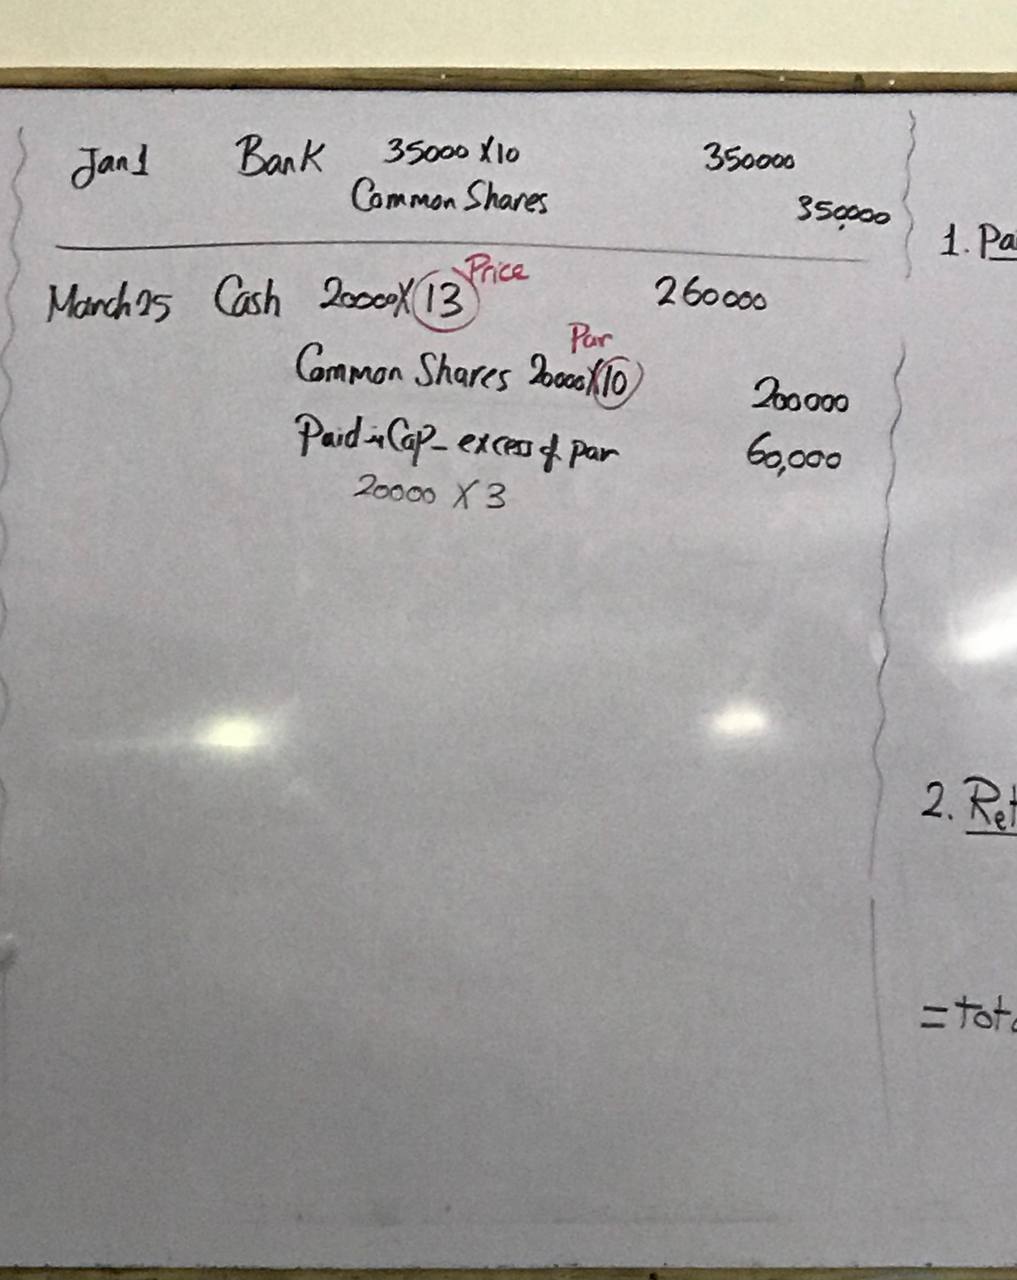 Jan 1 Bank 35000 X 10 350000
Common Shares 350,000
March 25 Cash 20000 X 13 Price 260000
Par
Common Shares 20000 X 10 200000
Paid in Cap - excess of par 60,000
20000 X 3
1. Pa
2. Ret
= tota